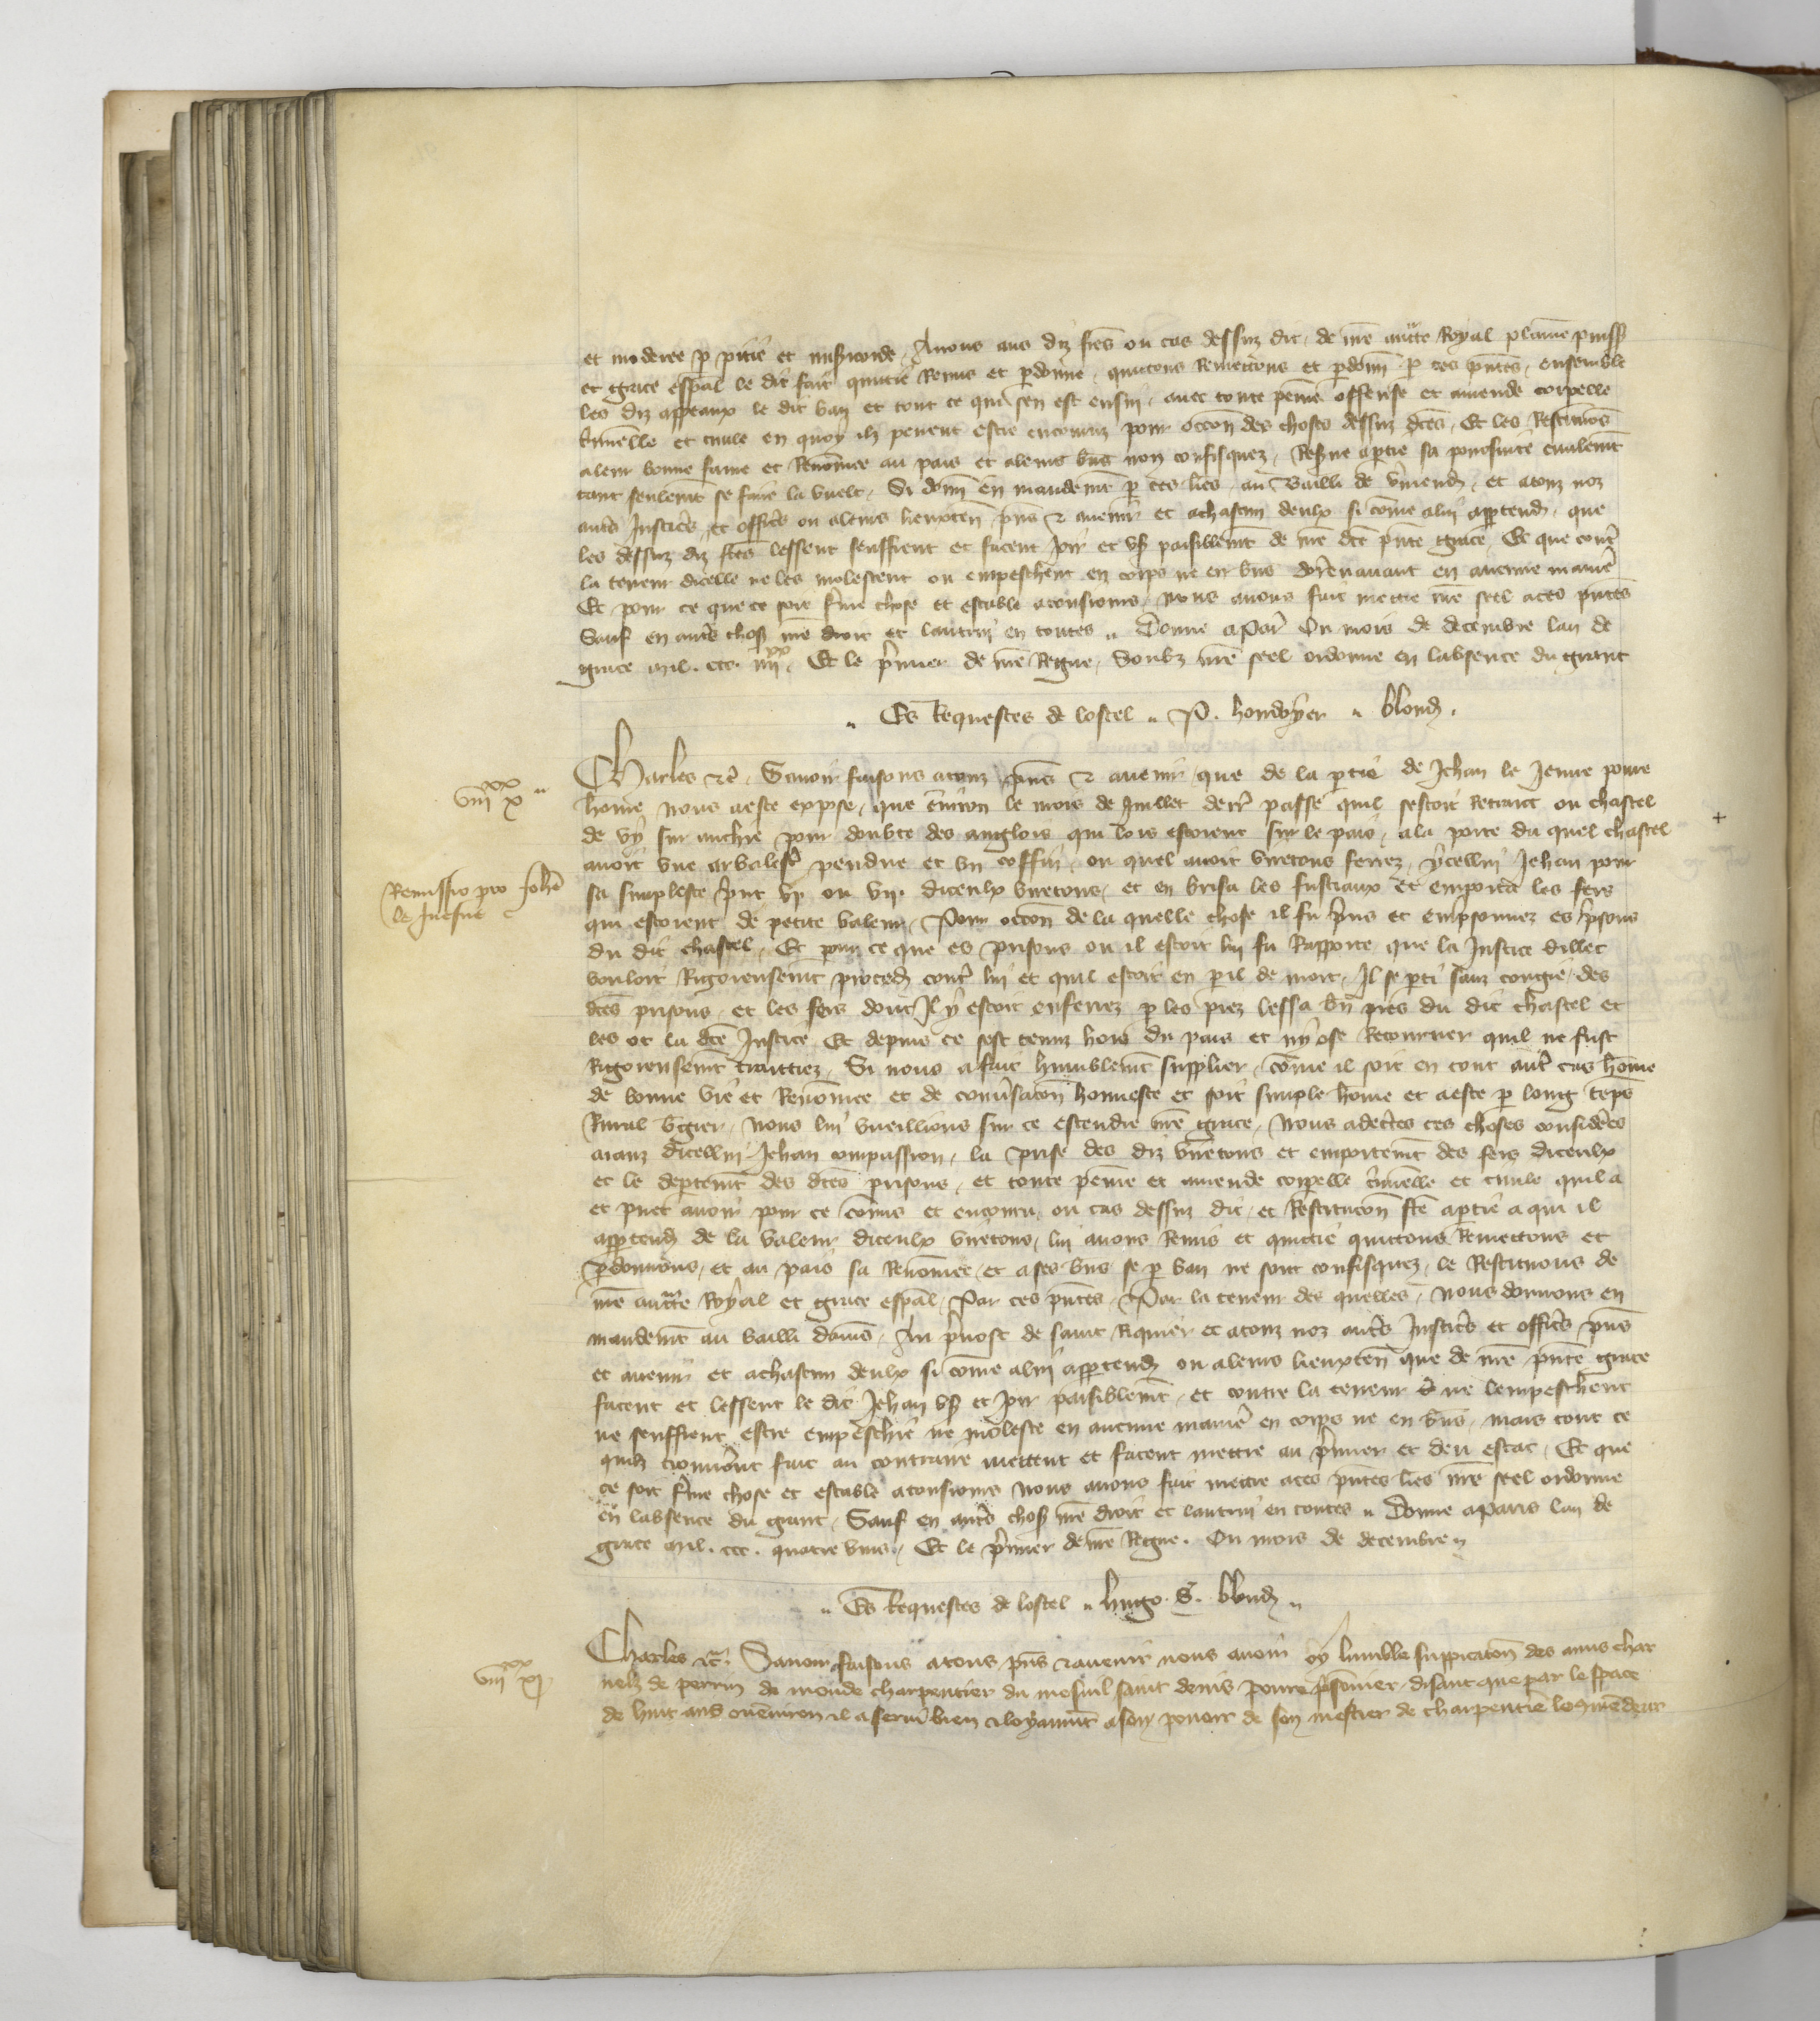 et moderee p pitie et misericorde, Avons aus diz freres ou cas dessuz dit, de nre aucte Royal plaine puiss
et grace espal le dit fait quittie Remis et pdonne, quittons Remettons et pdonn p ces pntes, ensemble
les diz appeaux le dit ban et tout ce qui sen est ensui, avec toute peine offense et amende corpelle
criminelle et civile en quoy ilz pevent estre encouruz pour occon des choses dessuz dctes, Et les Restituons
a leur bonne fame et Renomee au pais et a leurs biens non confisquez, Reserve a ptie sa poursuite civilemt
tant seulemt se faire la vuelt, Si donn en mandemt p ces lres au Bailli de Vermend, et a touz noz
autres Justiciers et officiers ou a leurs lieuxten pns & avenir et a chascun deulx si come a lui appartend, que
les dessuz diz freres lessent seuffrent et facent joir et user paisiblemt de nre dcte pnte grace, Et que contre
la teneur dicelle ne les molestent ou empeschent en corps ne en biens dorenavant en aucune maniere
Et pour ce que ce soit ferme chose et estable a tousiours, Nous avons fait mettre nre seel a ces pntes
Sauf en autres choses nre droit et lautrui en toutes Donne a Par Ou mois de decembre lan de
grace mil. ccc. iiii xx, Et le premier de nre Regne, Soubz nre seel ordonne en labsence du grant
Es Requestes de lostel P. hondoyer blond.
Charles &c. Savoir faisons a touz pns & avenir, que de la ptie de Jehan le Jenne povre
home nous a este expose, que environ le mois de Juillet derr passe quil sestoit Retrait ou chastel
de vy sur authie pour doubte des anglois qui lors estoient sur le pais, a la porte du quel chastel
avoit une arbalestre pendue et un coffin, ou quel avoit viretons ferrez, ycellui Jehan pour
sa simplesce print vi ou vii diceulx viretons, et en brisa les fustiaux et emporta les fers
qui estoient de petite valeur, Pour occon de la quelle chose il fu prins et emprisonnez es prisons
du dit chastel, Et pour ce que es prisons ou il estoit lui fu Rapporte que la Justice dillec
vouloit Rigoreusemt proceder contre lui et quil estoit en peril de mort, Il se parti sanz congie des
dctes prisons, et les fers dont il y estoit enferrez p les piez lessa bien pres du dit chastel et
les ot la dcte Justice Et depuis ce sest tenuz hors du pais et ny ose Retourner quil ne fust
Rigoreusemt traittiez, Si nous a fait humblemt supplier, come il soit en tout autre cas home
de bonne vie et Renomee et de conversacon honneste et soit simple home et a este p long temps
Rural bergier, Nous lui vueillions sur ce estendre nre grace, Nous adecertes ces choses considerees
aianz dicellui Jehan compassion, la prise des diz viretons et emportemt des fers diceulx
et le departemt des dctes prisons, et toute peine et amende corpelle criminelle et civile quil a
et puet avoir pour ce comis et encouru, ou cas dessuz dit, et Restitucon fcte a ptie a qui il
appartend de la valeur diceulx viretons, lui avons Remis et quittie quittons Remettons et
pdonnons, et au pais sa Renomee et a ses biens se p ban ne sont confisquez, le Restituons de
nre auctte Royal et grace espal, Par ces pntes, Par la teneur des quelles, Nous donnons en
mandemt au bailli damiens, Au prevost de saint Riquier et a touz noz autres Justiciers et officiers pns
et avenir et a chascun deulx si come a lui appartend ou a leurs lieuxten que de nre pnte grace
facent et lessent le dit Jehan user et joir paisiblemt, et contre la teneur ne lempeschent
ne seuffrent estre empeschie ne moleste en aucune maniere en corps ne en biens, mais tout ce
quilz trouveront fait au contraire mettent et facent mettre au premier et deu estat, Et que
ce soit ferme chose et estable a tousiours Nous avons fait mettre a ces pntes lres nre seel ordonne
en labsence du grant, Sauf en autres choses nre droit et lautrui en toutes Donne a Paris lan de
grace mil. ccc. quatre vins, Et le premier de nre Regne. Ou mois de decembre
Es Requestes de lostel hugo. S. blond
Charles &c. Savoir faisons a tous pns & avenir nous avoir oy lumble supplicaton des amis char
nelz de perrin de monde charpentier du mesnil saint denis povre prisonnier, disant que par lespace
de huit ans ou environ il a servi bien & loyaumt a son povoir de son mestier de charpenterie
viii xx x
Remissio pro Johe
le Juesne
viii xx xj